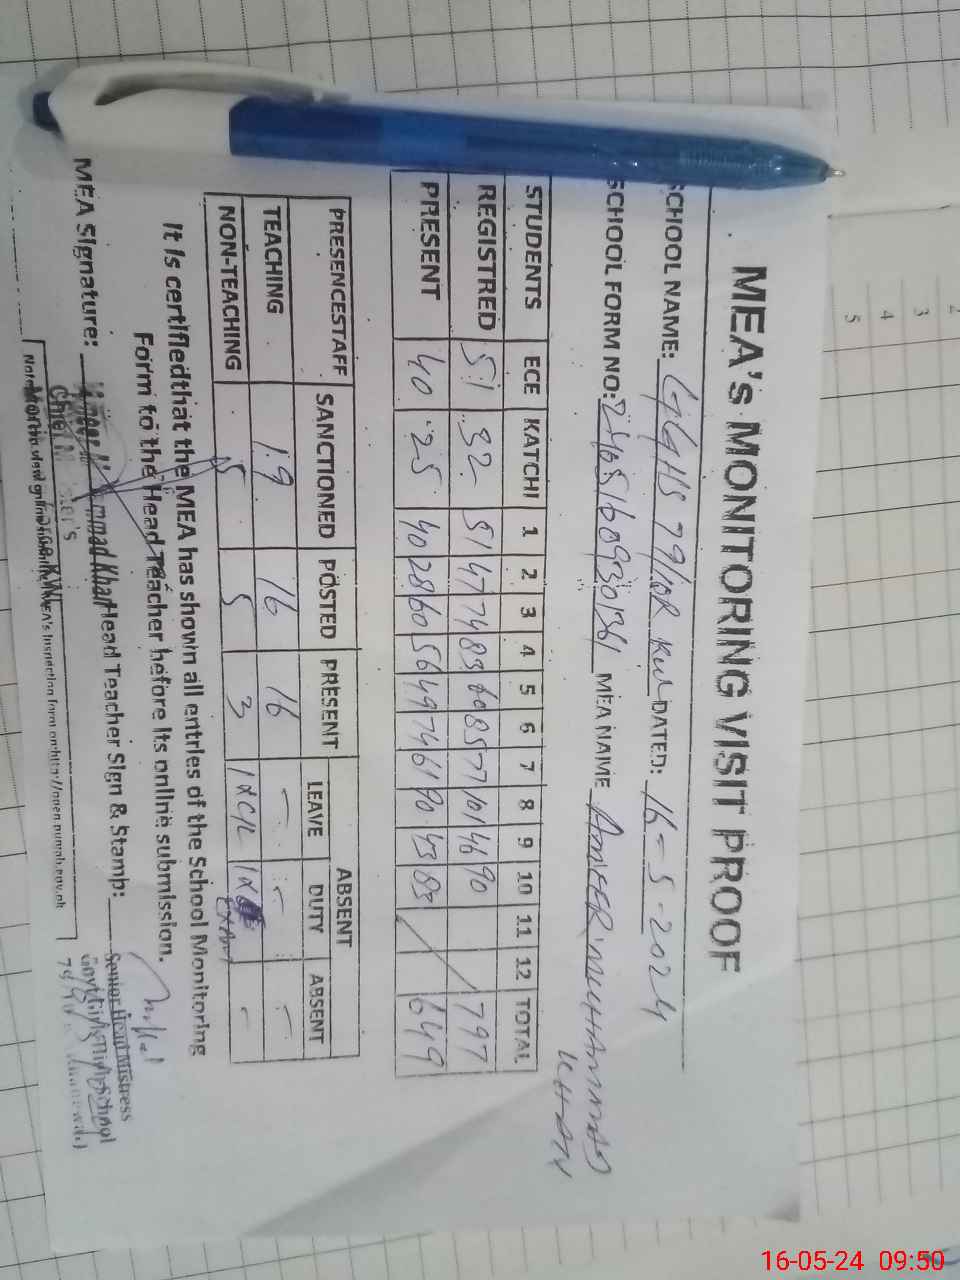 MEA's MONITORING VISIT PROOF
SCHOOL NAME: GGHS 79/10R KWL DATED: 16-5-2024
SCHOOL FORM NO: MEA NAME AMEER MUHAMMAD
KHAN
STUDENTS ECE KATCHI 1 2 3 4 5 6 7 8 9 10 11 12 TOTAL
REGISTRED 51 32 51 47 74 83 60 85 77 101 46 90 797
PRESENT 40 25 40 28 60 56 49 74 61 90 43 83 649
PRESENCESTAFF SANCTIONED POSTED PRESENT ABSENT
LEAVE DUTY ABSENT
TEACHING 19 16 16 - - -
NON-TEACHING 5 5 3 1xC/L 1x EXAM -
It is certifiedthat the MEA has shown all entries of the School Monitoring
Form to the Head Teacher before its online submission.
MEA Signature: Head Teacher Sign & Stamp:
Ameer Muhammad Khan
Senior Head Mistress
Govt Girls High School
5
4
3
2
16-05-24 09:50